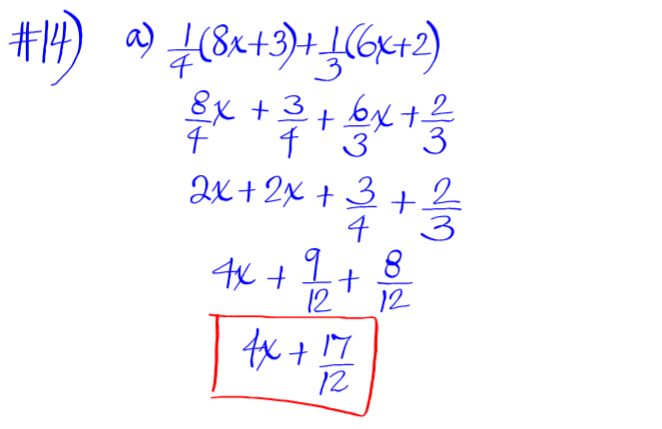 #14) a) 1/4(8x+3)+1/3(6x+2)
8/4x + 3/4 + 6/3x + 2/3
2x + 2x + 3/4 + 2/3
4x + 9/12 + 8/12
4x + 17/12